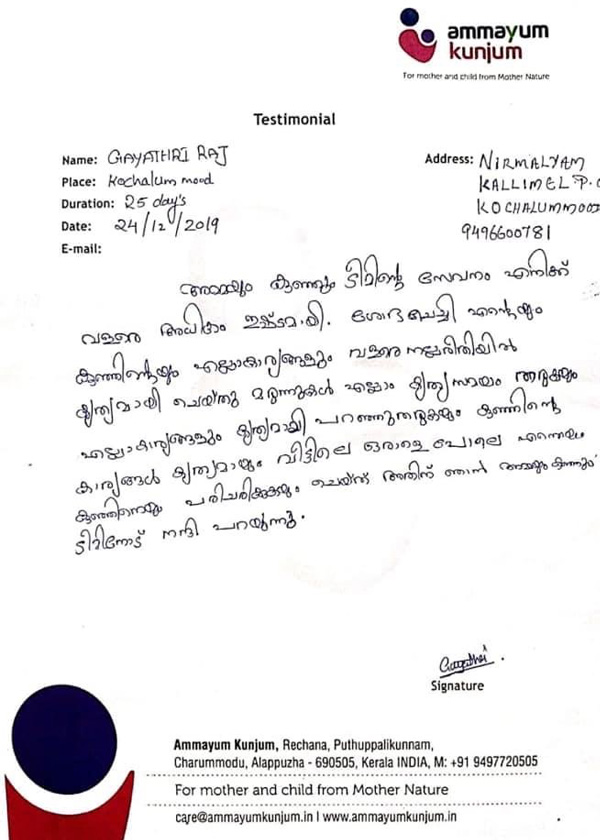 ammayum
kunjum
For mother and child from Mother Nature
Testimonial
Name: GAYATHRI RAJ
Place: Kochalum mood
Duration: 25 day's
Date: 24/12/2019
E-mail:
Address: NIRMALYAM
KALLIMEL P.O
KOCHALUMMOOD
9496600781
അമ്മയും കുഞ്ഞും ടീമിന്റെ സേവനം എനിക്ക്
വളരെ അധികം ഇഷ്ടമായി. ചേച്ചി എന്റെയും
കുഞ്ഞിന്റെയും എല്ലാകാര്യങ്ങളും വളരെ നല്ലരീതിയിൽ
കൃത്യമായി ചെയ്തു മരുന്നുകൾ എല്ലാം കൃത്യസമയം തരുകയും
എല്ലാകാര്യങ്ങളും കൃത്യമായി പറഞ്ഞുതരുകയും കുഞ്ഞിന്റെ
കാര്യങ്ങൾ കൃത്യമായും വീട്ടിലെ ഒരാളെ പോലെ എന്നെയും
കുഞ്ഞിനെയും പരിചരിക്കുകയും ചെയ്തു അതിന് ഞാൻ അമ്മയും കുഞ്ഞും
ടീമിനോട് നന്ദി പറയുന്നു.
Gayathri
Signature
Ammayum Kunjum, Rechana, Puthuppalikunnam,
Charummodu, Alappuzha - 690505, Kerala INDIA, M: +91 9497720505
For mother and child from Mother Nature
care@ammayumkunjum.in I www.ammayumkunjum.in